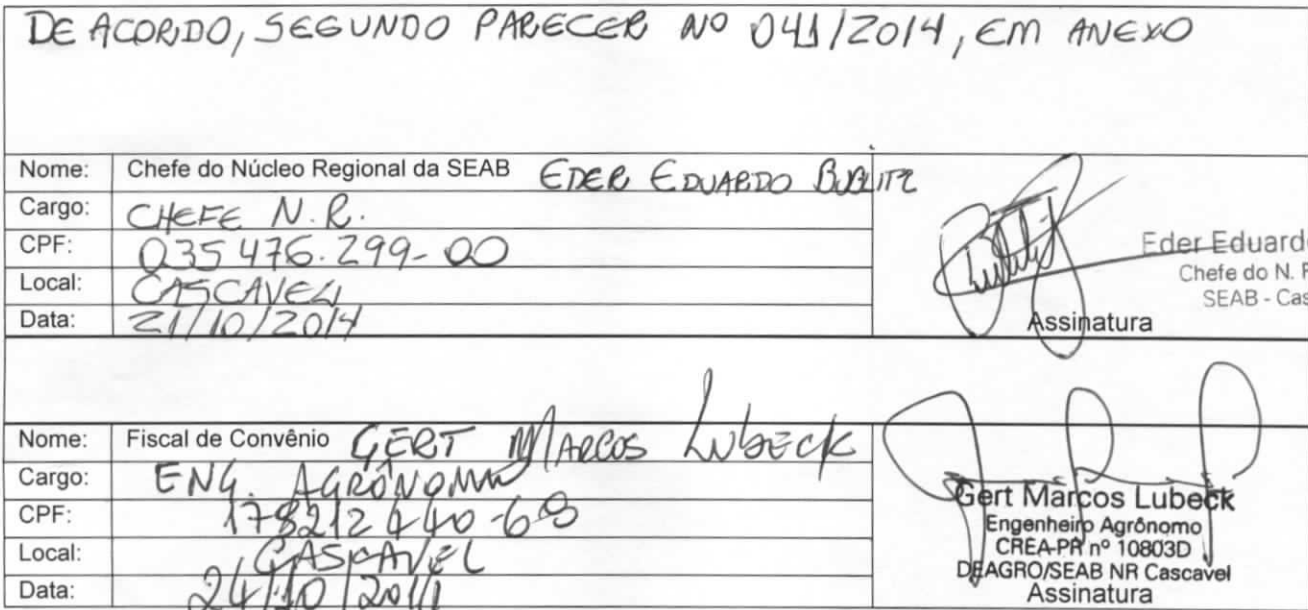 DE ACORDO, SEGUNDO PARECER Nº 041/2014, EM ANEXO
Nome: Chefe do Núcleo Regional da SEAB EDER EDUARDO BUBLITZ
Cargo: CHEFE N.R.
CPF: 035 476.299-00
Local: CASCAVEL
Data: 21/10/2014
Eder Eduardo
Chefe do N. R
SEAB - Cas
Assinatura
Nome: Fiscal de Convênio GERT MARCOS LUBECK
Cargo: ENG. AGRÔNOMO
CPF: 178212440-68
Local: CASCAVEL
Data: 24/10/2014
Gert Marcos Lubeck
Engenheiro Agrônomo
CREA-PR nº 10803D
DEAGRO/SEAB NR Cascavel
Assinatura